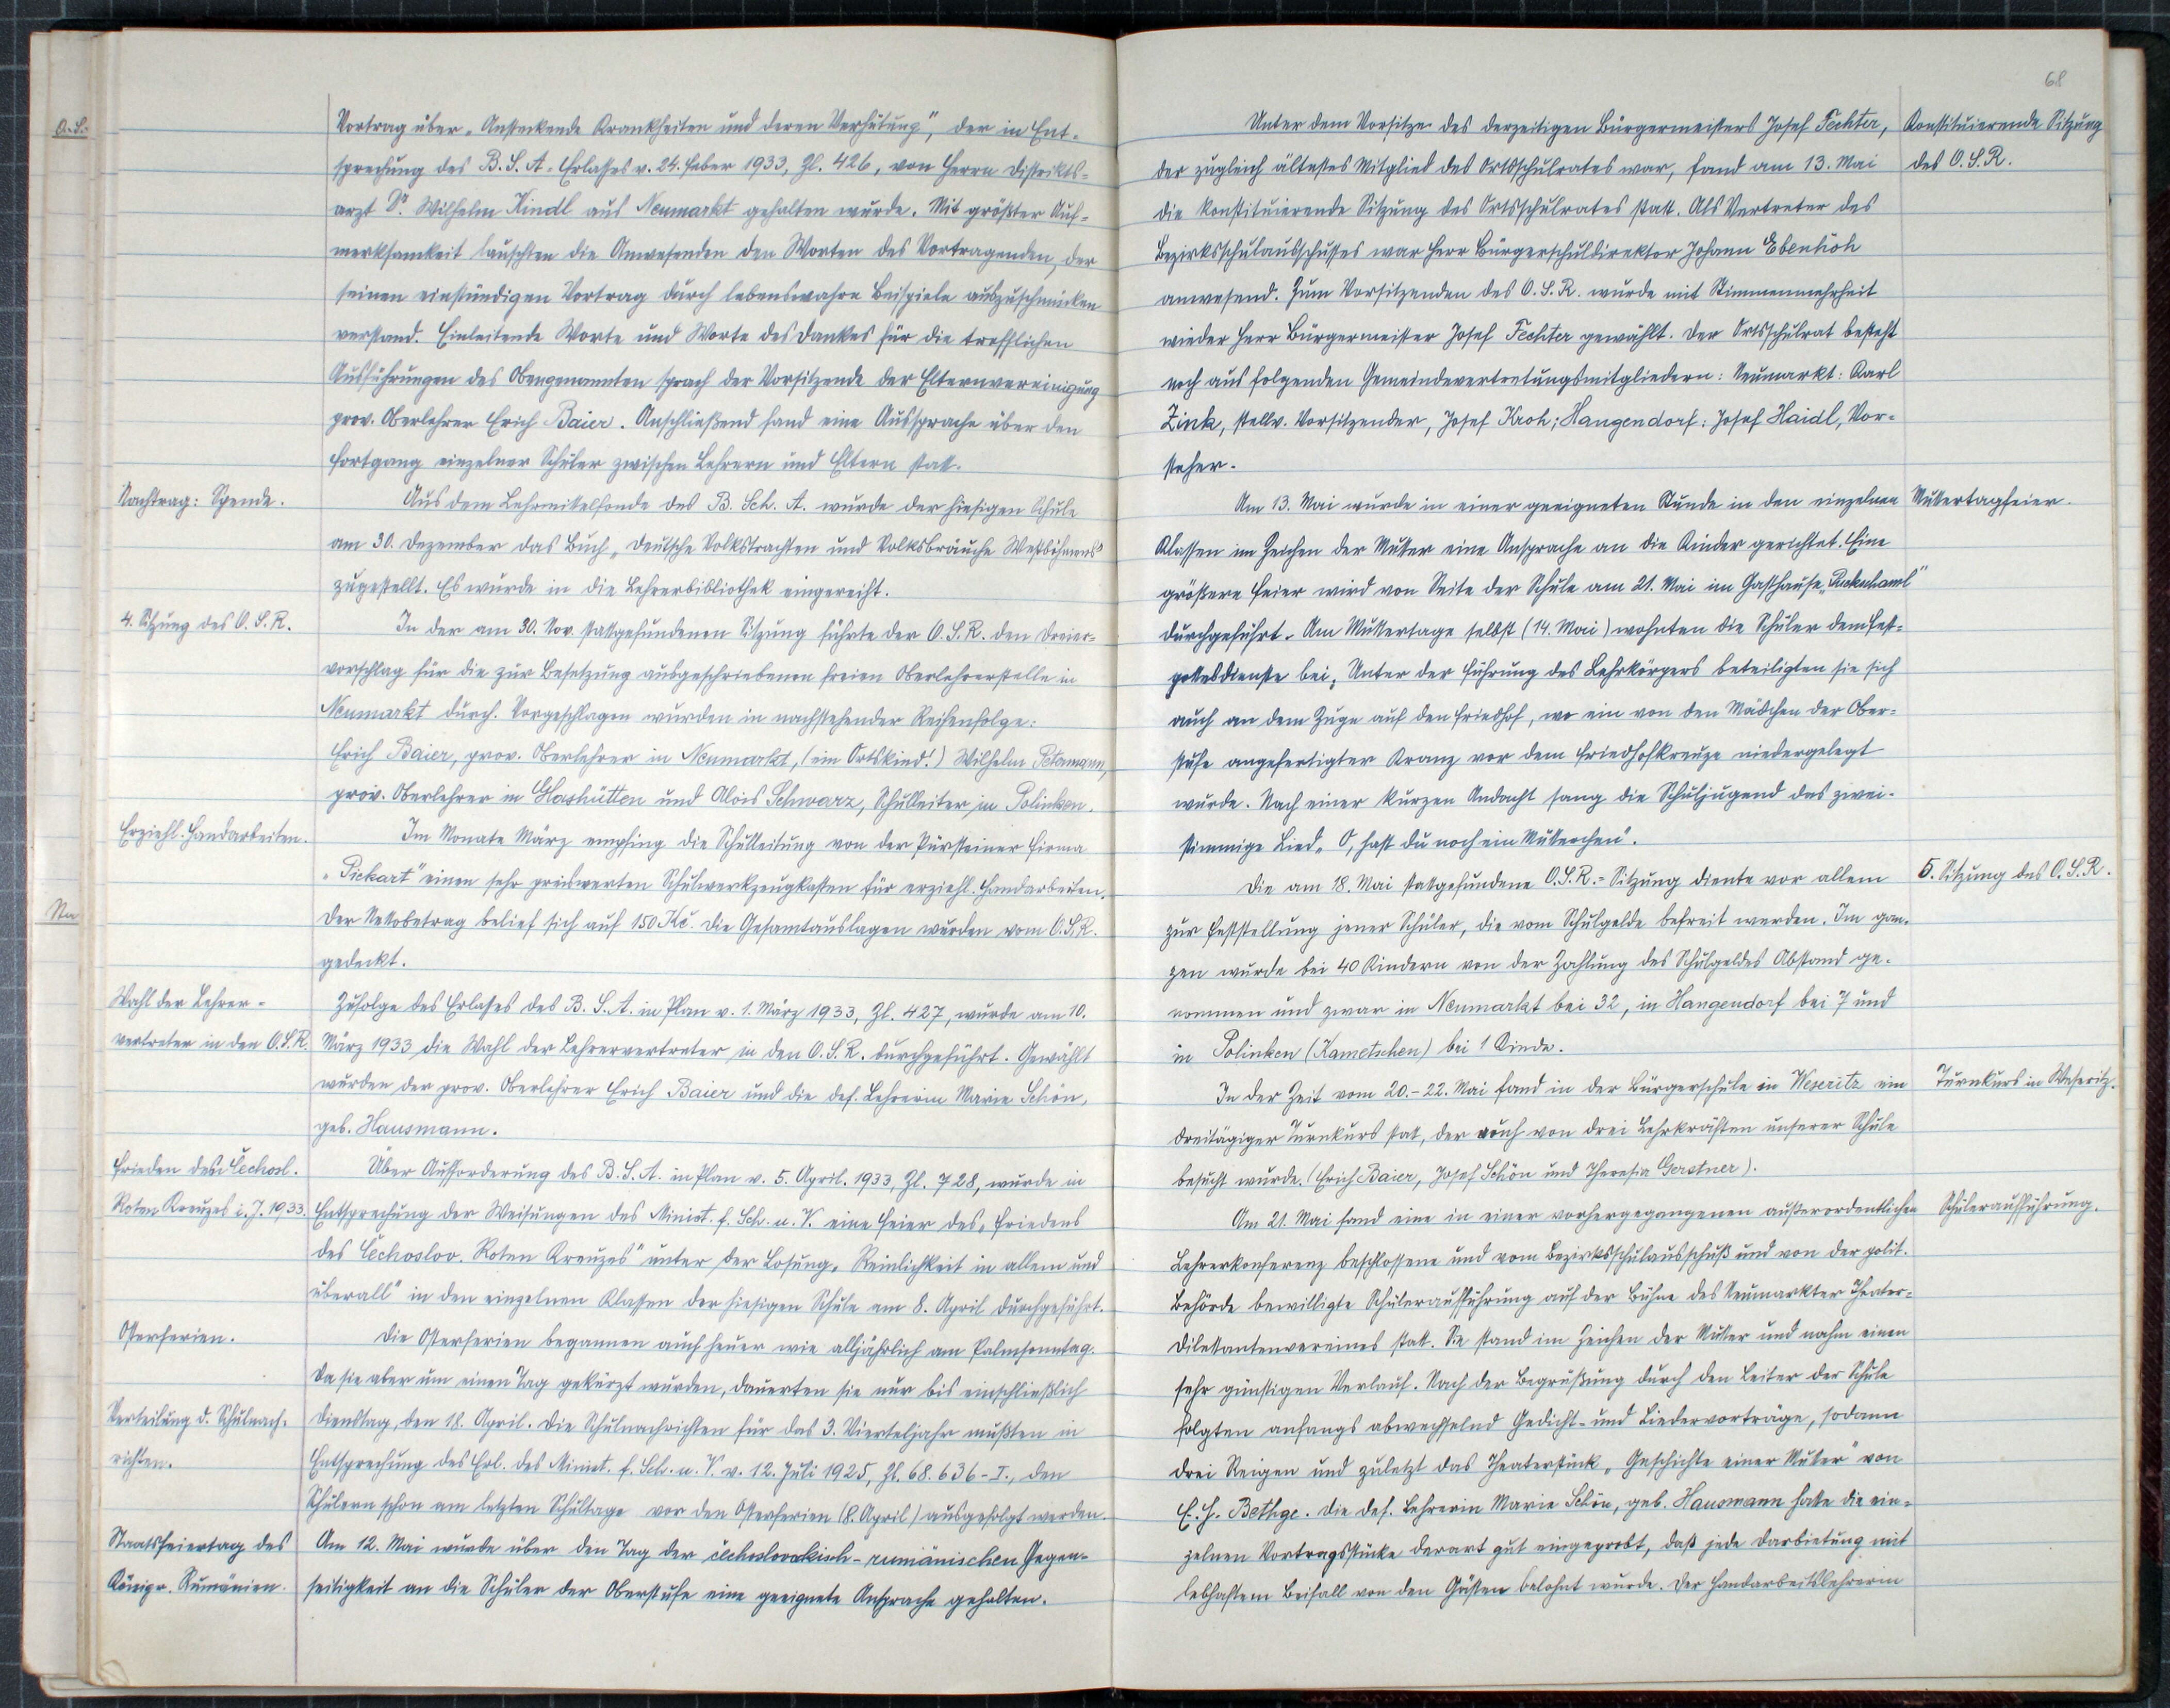 O.S.
Vortrag über „Ansteckende Krankheiten und deren Verhütung", der in Ent-
sprechung des B.S.A.-Erlasses v. 24. Feber 1933, Zl. 426, von Herrn Distrikts-
arzt Dr. Wilhelm Kindl aus Neumarkt gehalten wurde. Mit größter Auf-
merksamkeit lauschten die Anwesenden den Worten des Vortragenden, der
seinen einstündigen Vortrag durch lebenswahre Beispiele auszuschmücken
verstand. Einleitende Worte und Worte des Dankes für die trefflichen
Ausführungen des Obengenannten sprach der Vorsitzende der Elternvereinigung
prov. Oberlehrer Erich Baier. Anschließend fand eine Aussprache über den
Fortgang einzelner Schüler zwischen Lehrern und Eltern statt.
Nachtrag: Spende.
Aus dem Lehrmittelfonde des B. Sch. A. wurde der hiesigen Schule
am 30. Dezember das Buch „Deutsche Volkstrachten und Volksbräuche Westböhmens"
zugestellt. Es wurde in die Lehrerbibliothek eingereiht.
4. Sitzung des O.S.R.
In der am 30. Nov. stattgefundenen Sitzung führte der O.S.R. den Dreier-
vorschlag für die zur Besetzung ausgeschriebenen freien Oberlehrerstelle in
Neumarkt durch. Vorgeschlagen wurden in nachstehender Reihenfolge:
Erich Baier, prov. Oberlehrer in Neumarkt, (ein Ortskind!) Wilhelm Petamann,
prov. Oberlehrer in Glashütten und Alois Schwarz, Schulleiter in Polinken.
Erziehl. Handarbeiten.
Im Monate März empfing die Schulleitung von der Pürsteiner Firma
„Pickart" einen sehr preiswerten Schulwerkzeugkasten für erziehl. Handarbeiten.
Na
Der Nettobetrag belief sich auf 150 Kč. Die Gesamtauslagen wurden vom O.S.R.
gedeckt.
Wahl der Lehrer-
vertreter in den O.S.R.
Zufolge des Erlasses des B.S.A. in Plan v. 1. März 1933, Zl. 427, wurde am 10.
März 1933 die Wahl der Lehrervertreter in den O.S.R. durchgeführt. Gewählt
wurden der prov. Oberlehrer Erich Baier und die def. Lehrerin Marie Schön,
geb. Hausmann.
Frieden des Čechosl.
Roten Kreuzes i. J. 1933.
Über Aufforderung des B.S.A. in Plan v. 5. April. 1933, Zl. 728, wurde in
Entsprechung der Weisungen des Minist. f. Sch. u. V. eine Feier des „Friedens
des Čechoslov. Roten Kreuzes" unter der Losung „Reinlichkeit in allem und
überall" in den einzelnen Klassen der hiesigen Schule am 8. April durchgeführt.
Osterferien.
Die Osterferien begannen auch heuer wie alljährlich am Palmsonntag.
Da sie aber um einen Tag gekürzt wurden, dauerten sie nur bis einschließlich
Verteilung d. Schulnach-
richten.
Dienstag, den 18. April. Die Schulnachrichten für das 3. Vierteljahr mußten in
Entsprechung des Erl. des Minist. f. Sch. u. V. v. 12. Juli 1925, Zl. 68.636-I., den
Schülern schon am letzten Schultage vor den Osterferien (8. April) ausgefolgt werden.
Staatsfeiertag des
Königr. Rumänien.
Am 12. Mai wurde über den Tag der čechoslovakisch-rumänischen Gegen-
seitigkeit an die Schüler der Oberstufe eine geeignete Ansprache gehalten.
68
Unter dem Vorsitze des derzeitigen Bürgermeisters Josef Fechter,
Konstituierende Sitzung
des O.S.R.
der zugleich ältestes Mitglied des Ortsschulrates war, fand am 13. Mai
die konstituierende Sitzung des Ortsschulrates statt. Als Vertreter des
Bezirksschulausschusses war Herr Bürgerschuldirektor Johann Ebenhöh
anwesend. Zum Vorsitzenden des O.S.R. wurde mit Stimmenmehrheit
wieder Herr Bürgermeister Josef Fechter gewählt. Der Ortsschulrat besteht
noch aus folgenden Gemeindevertretungsmitgliedern: Neumarkt: Karl
Zink, stellv. Vorsitzender, Josef Kroh; Hangendorf: Josef Haidl, Vor-
steher.
Am 13. Mai wurde in einer geeigneten Stunde in den einzelnen
Muttertagfeier.
Klassen im Zeichen der Mutter eine Ansprache an die Kinder gerichtet. Eine
größere Feier wird von Seite der Schule am 21. Mai im Gasthause
durchgeführt. Am Muttertage selbst (14. Mai) wohnten die Schüler dem Fest-
gottesdienste bei. Unter der Führung des Lehrkörpers beteiligten sie sich
auch an dem Zuge auf den Friedhof, wo ein von den Mädchen der Ober-
stufe angefertigter Kranz vor dem Friedhofkreuze niedergelegt
wurde. Nach einer kurzen Andacht sang die Schuljugend das zwei-
stimmige Lied „O, hast du noch ein Mütterchen".
Die am 18. Mai stattgefundene O.S.R.-Sitzung diente vor allem
5. Sitzung des O.S.R.
zur Feststellung jener Schüler, die vom Schulgelde befreit werden. Im gan-
zen wurde bei 40 Kindern von der Zahlung des Schulgeldes Abstand ge-
nommen und zwar in Neumarkt bei 32, in Hangendorf bei 7 und
in Polinken (Kametschen) bei 1 Kinde.
In der Zeit vom 20.-22. Mai fand in der Bürgerschule in Weseritz ein
Turnkurs in Weseritz.
dreitägiger Turnkurs statt, der auch von drei Lehrkräften unserer Schule
besucht wurde. (Erich Baier, Josef Schön und Theresia Gerstner).
Am 21. Mai fand eine in einer vorhergegangenen außerordentlichen
Schüleraufführung.
Lehrerkonferenz beschlossene und vom Bezirksschulausschuß und von der polit.
Behörde bewilligte Schüleraufführung auf der Bühne des Neumarkter Theater-
Dilettantenvereines statt. Sie stand im Zeichen der Mutter und nahm einen
sehr günstigen Verlauf. Nach der Begrüßung durch den Leiter der Schule
folgten anfangs abwechselnd Gedicht- und Liedervorträge, sodann
drei Reigen und zuletzt das Theaterstück „Geschichte einer Mutter" von
E.H. Bethge. Die def. Lehrerin Marie Schön, geb. Hausmann hatte die ein-
zelnen Vortragsstücke derart gut eingeprobt, daß jede Darbietung mit
lebhaftem Beifall von den Gästen belohnt wurde. Der Handarbeitslehrerin